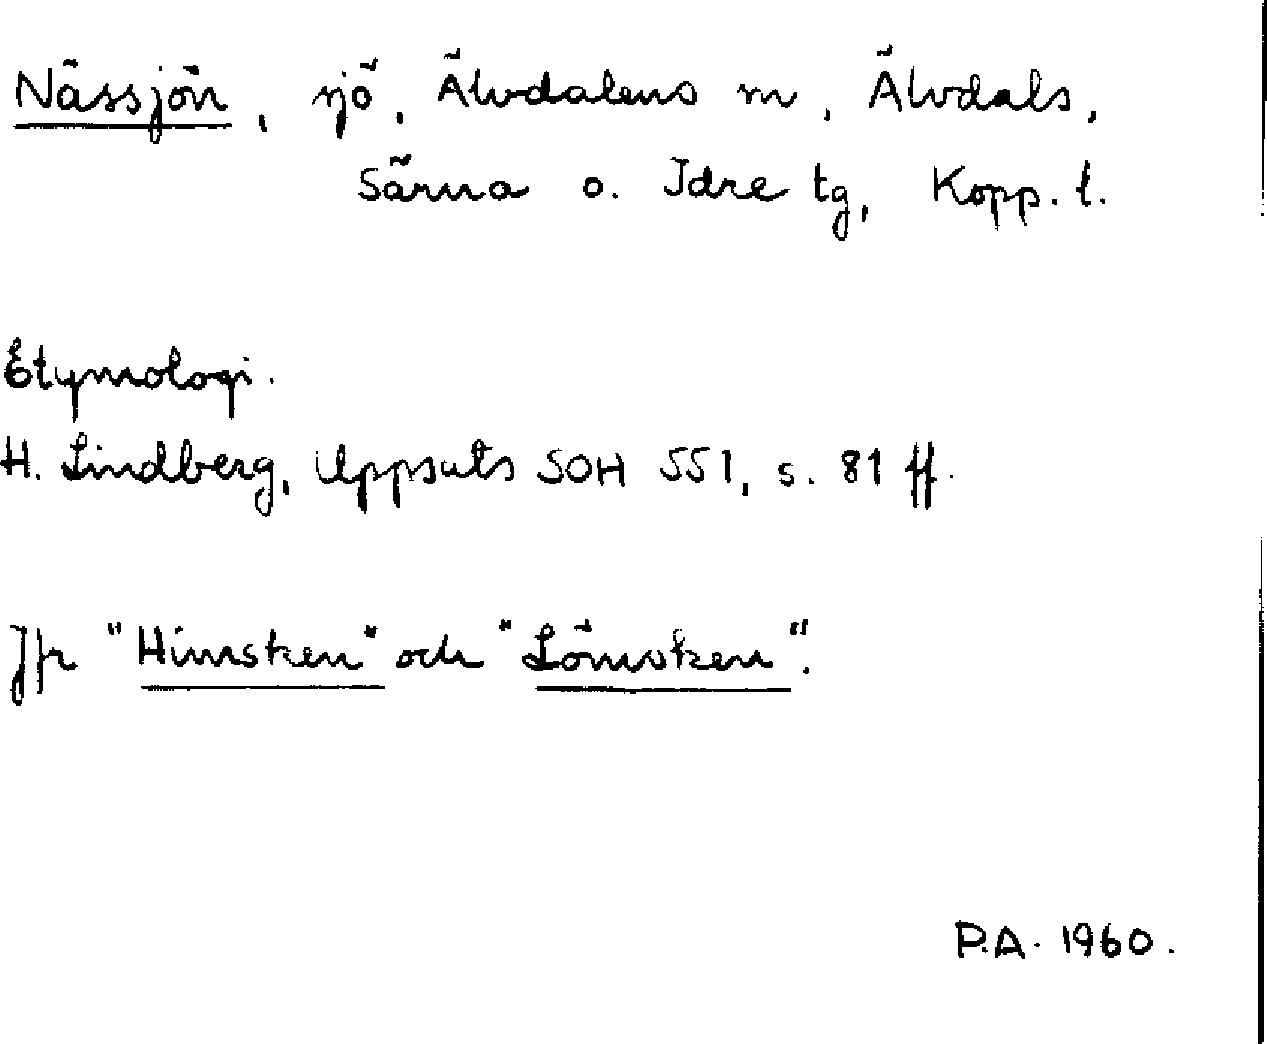 Nässjön, sjö, Älvdalens m, Älvdals,
Särna o. Idre tg, Kopp. l.
Etymologi.
H. Lindberg, Uppsats SOH 551, s. 81 ff.
Jfr "Himsken" och "Lömsken".
P.A. 1960.